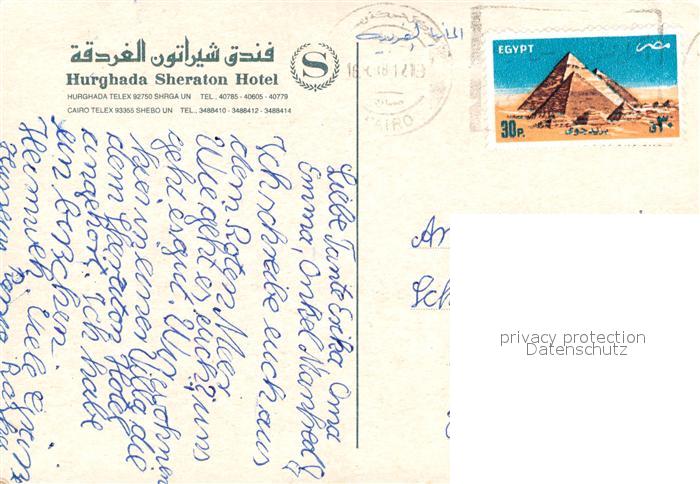 فندق شيراتون الغردقة
Hurghada Sheraton Hotel
HURGHADA TELEX 92750 SHRGA UN TEL., 40785 - 40605 - 40779
CAIRO TELEX 93355 SHEBO UN TEL., 3488410 - 3488412 - 3488414
S
CAIRO
EGYPT
مصر
30P.
بريد جوى
٣٠ ق
Liebe Tante Erika, Oma
Emma, Onkel Manfred
Ich schreibe euch aus
dem Roten Meer
Wie geht es euch? uns
geht es gut. Wir wohnen
hier in einer Villa die
dem Sheraton Hotel
angehört. Ich habe
ein bischen
Heimweh. Viele
An
Sch
privacy protection
Datenschutz